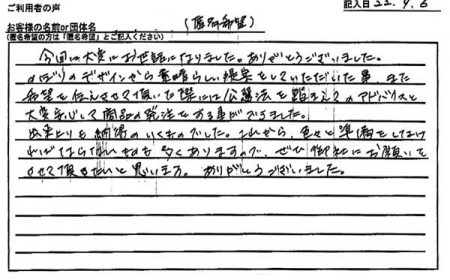 ご利用者の声
記入日 22.9.6
お客様の名前or団体名
(匿名希望の方は「匿名希望」とご記入ください)
(匿名希望)
今回は大変にお世話になりました。ありがとうございました。
のぼりのデザインから素晴らしい提案をしていただいた事、また
希望を伝えさせて頂いた際には公選法を踏まえてのアドバイスと
大変安心して商品の発注をする事ができました。
出来上りも納得のいくものでした。これから、色々と準備をしなけ
ればならないものも多くありますので、ぜひ御社にお願いを
させて頂きたいと思います。ありがとうございました。